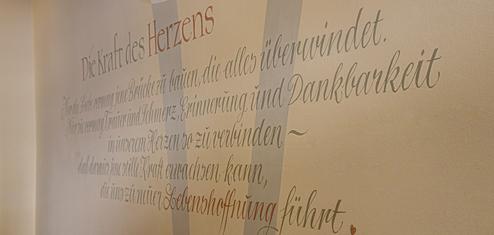 Die Kraft des Herzens
Nur die Liebe vermag jene Brücke zu bauen, die alles überwindet.
Nur sie vermag Trauer und Schmerz, Erinnerung und Dankbarkeit
in unserem Herzen so zu verbinden ~
daß daraus jene stille Kraft erwachsen kann,
die uns zu neuer Lebenshoffnung führt.